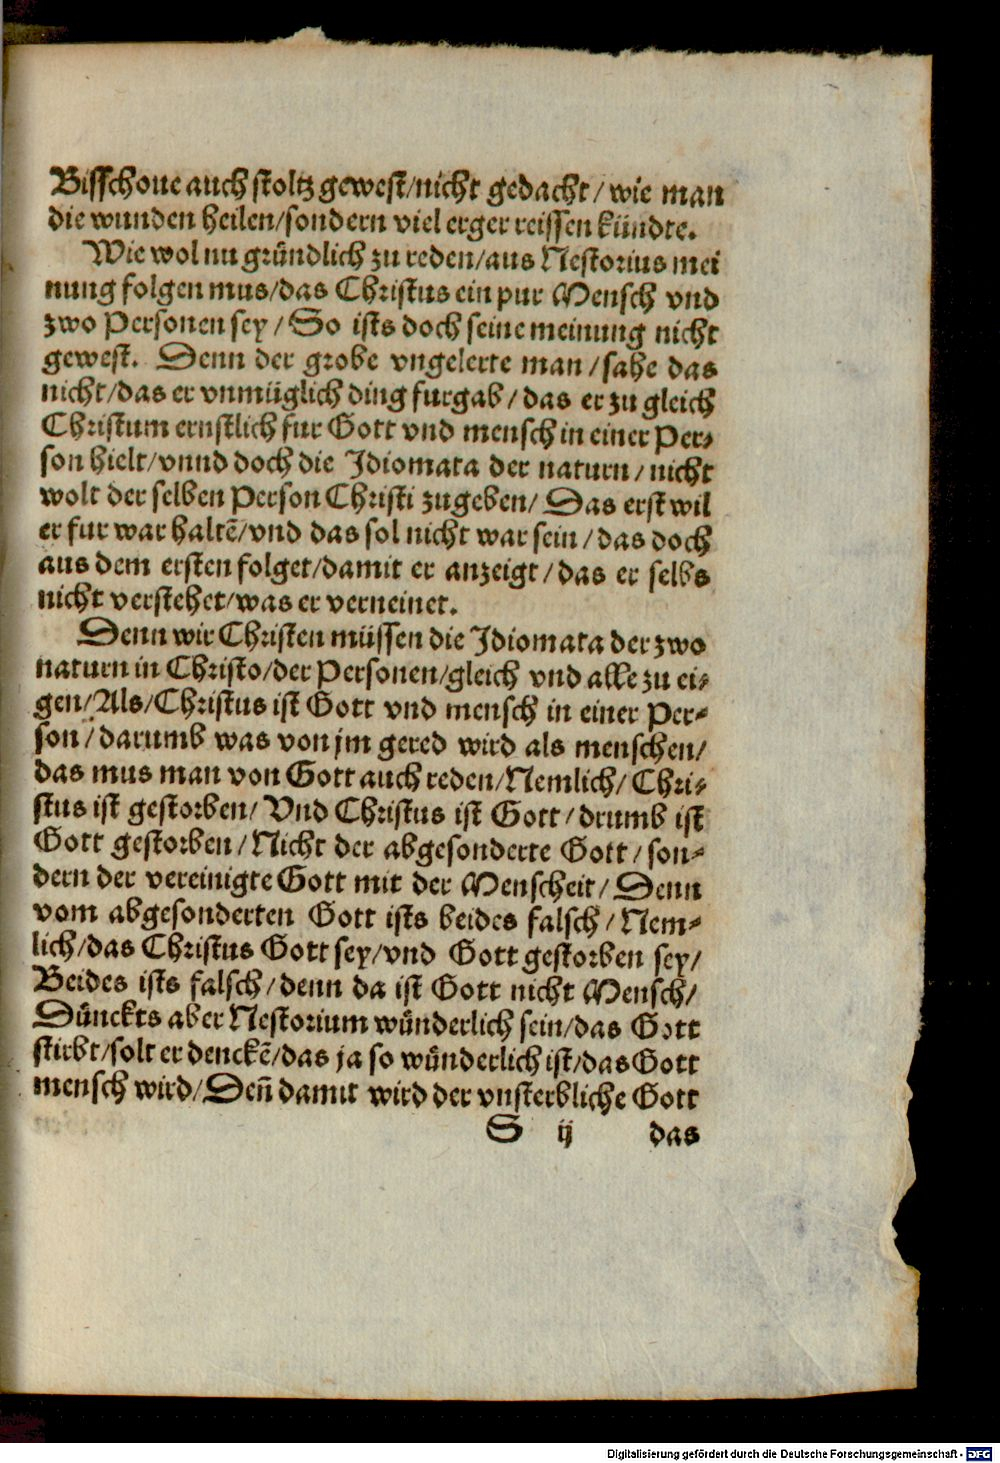 Bisschoue auch stoltz gewest/nicht gedacht/ wie man
die wunden heilen/sondern viel erger reissen kündte.
Wie wol nu gründlich zu reden/aus Nestorius mei
nung folgen mus/das Christus ein pur Mensch vnd
zwo Personen sey/ So ists doch seine meinung nicht
gewest. Denn der grobe vngelerte man/sahe das
nicht/das er vnmüglich ding furgab/ das er zu gleich
Christum ernstlich fur Gott vnd mensch in einer Per-
son hielt/vnnd doch die Idiomata der naturn/nicht
wolt der selben Person Christi zugeben/ Das erst wil
er fur war haltē/vnd das sol nicht war sein/das doch
aus dem ersten folget/damit er anzeigt/das er selbs
nicht verstehet/was er verneinet.
Denn wir Christen müssen die Idiomata der zwo
naturn in Christo/der Personen/gleich vnd alle zu ei-
gen/Als/Christus ist Gott vnd mensch in einer Per-
son/darumb was von jm gered wird als menschen/
das mus man von Gott auch reden/Nemlich/ Chri-
stus ist gestorben/ Vnd Christus ist Gott/drumb ist
Gott gestorben/Nicht der abgesonderte Gott/son-
dern der vereinigte Gott mit der Menscheit/ Denn
vom abgesonderten Gott ists beides falsch/Nem-
lich/das Christus Gott sey/vnd Gott gestorben sey/
Beides ists falsch/denn da ist Gott nicht Mensch/
Dünckts aber Nestorium wünderlich sein/das Gott
stirbt/solt er denckē/das ja so wünderlich ist/das Gott
mensch wird/Deñ damit wird der vnsterbliche Gott
S ij das
Digitalisierung gefördert durch die Deutsche Forschungsgemeinschaft - DFG